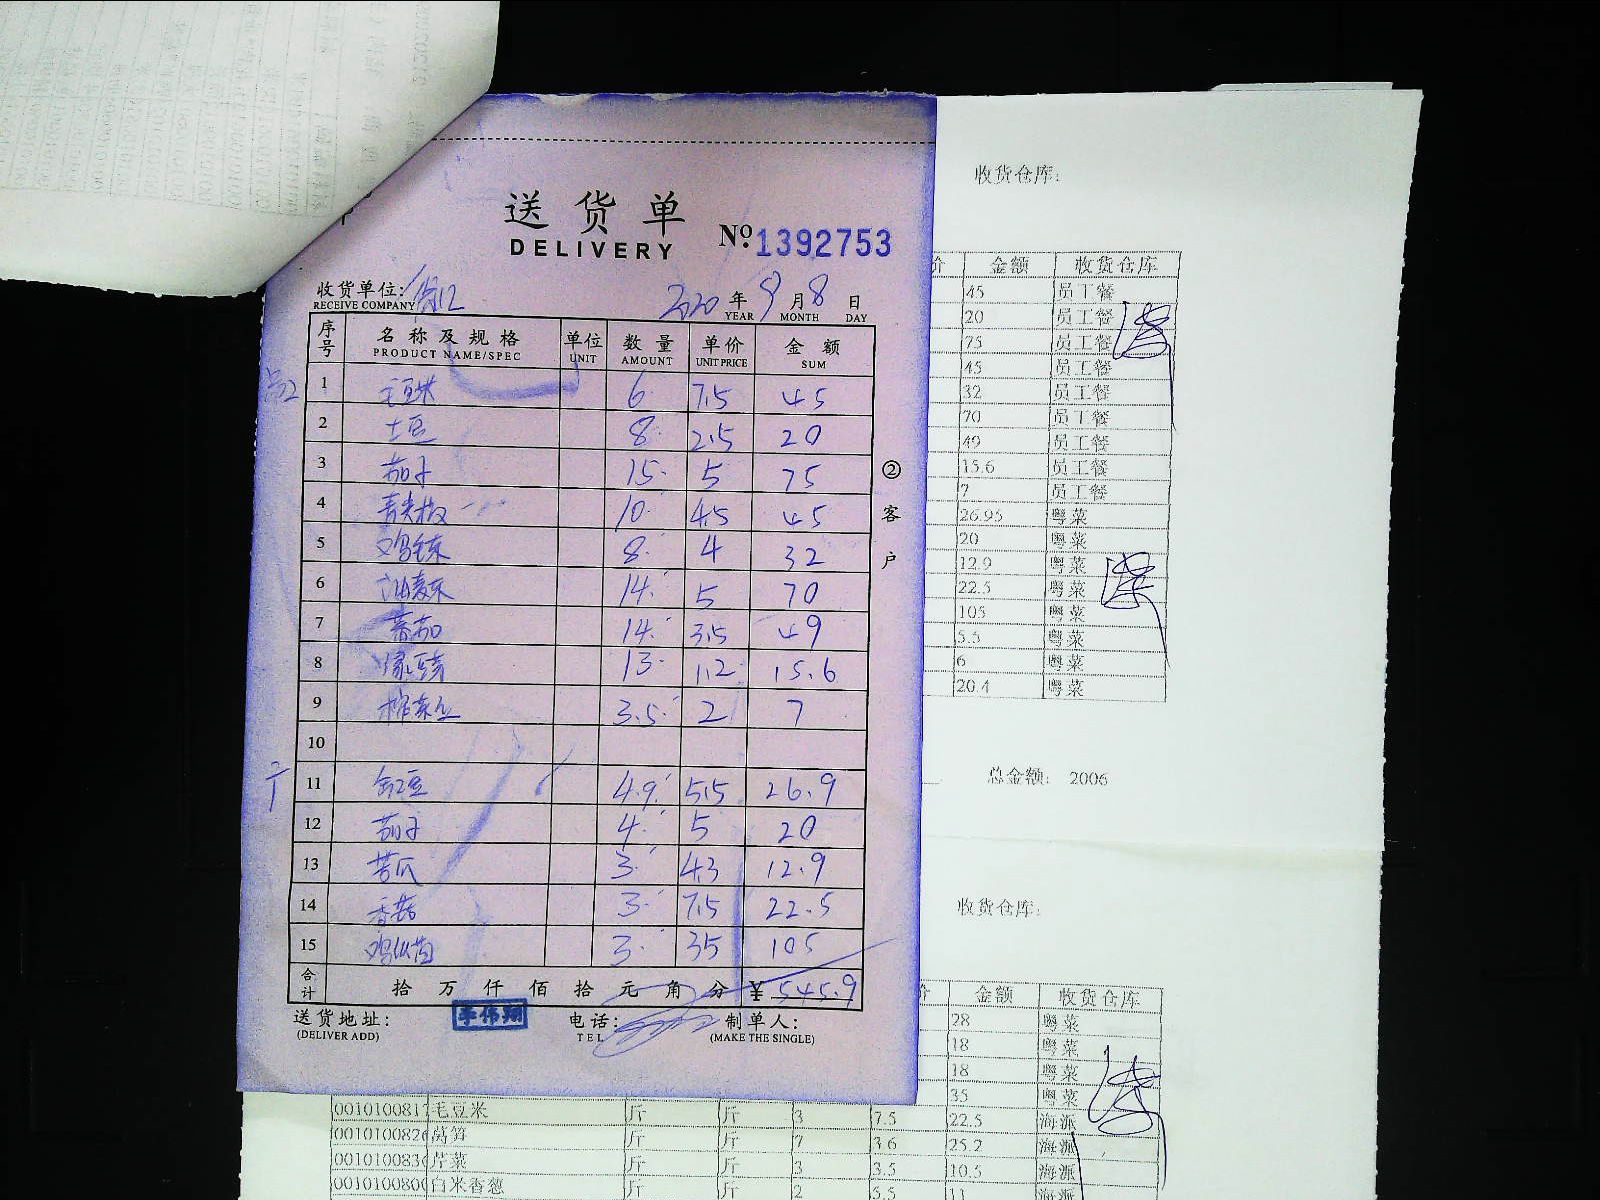 送货单
DELIVERY
№:1392753
收货单位:
RECEIVE COMPANY
2020 年 9 月 8 日
YEAR MONTH DAY
序号 名称及规格 单位 数量 单价 金额
PRODUCT NAME/SPEC UNIT AMOUNT UNIT PRICE SUM
1 毛豆米 6 7.5 45
2 土豆 8 2.5 20
3 茄子 15 5 75
4 青尖椒 10 4.5 45
5 8 4 32
6 油麦菜 14 5 70
7 蕃茄 14 3.5 49
8 13 1.2 15.6
9 3.5 2 7
10
11 缸豆 4.9 5.5 26.9
12 茄子 4 5 20
13 苦瓜 3 4.3 12.9
14 香菇 3 7.5 22.5
15 3 35 105
合计 拾 万 仟 佰 拾 元 角 分 ¥ 545.9
② 客户
送货地址:
(DELIVER ADD)
李伟翔
电话:
TEL
制单人:
(MAKE THE SINGLE)
收货仓库:
价 金额 收货仓库
45 员工餐
20 员工餐
75 员工餐
45 员工餐
32 员工餐
70 员工餐
49 员工餐
15.6 员工餐
7 员工餐
26.95 粤菜
20 粤菜
12.9 粤菜
22.5 粤菜
105 粤菜
5.5 粤菜
6 粤菜
20.4 粤菜
总金额: 2006
收货仓库:
价 金额 收货仓库
28 粤菜
18 粤菜
18 粤菜
35 粤菜
毛豆米 斤 斤 3 7.5 22.5 海派
莴笋 斤 斤 7 3.6 25.2 海派
芹菜 斤 斤 3 3.5 10.5 海派
白米香葱 斤 斤 2 5.5 11 海派